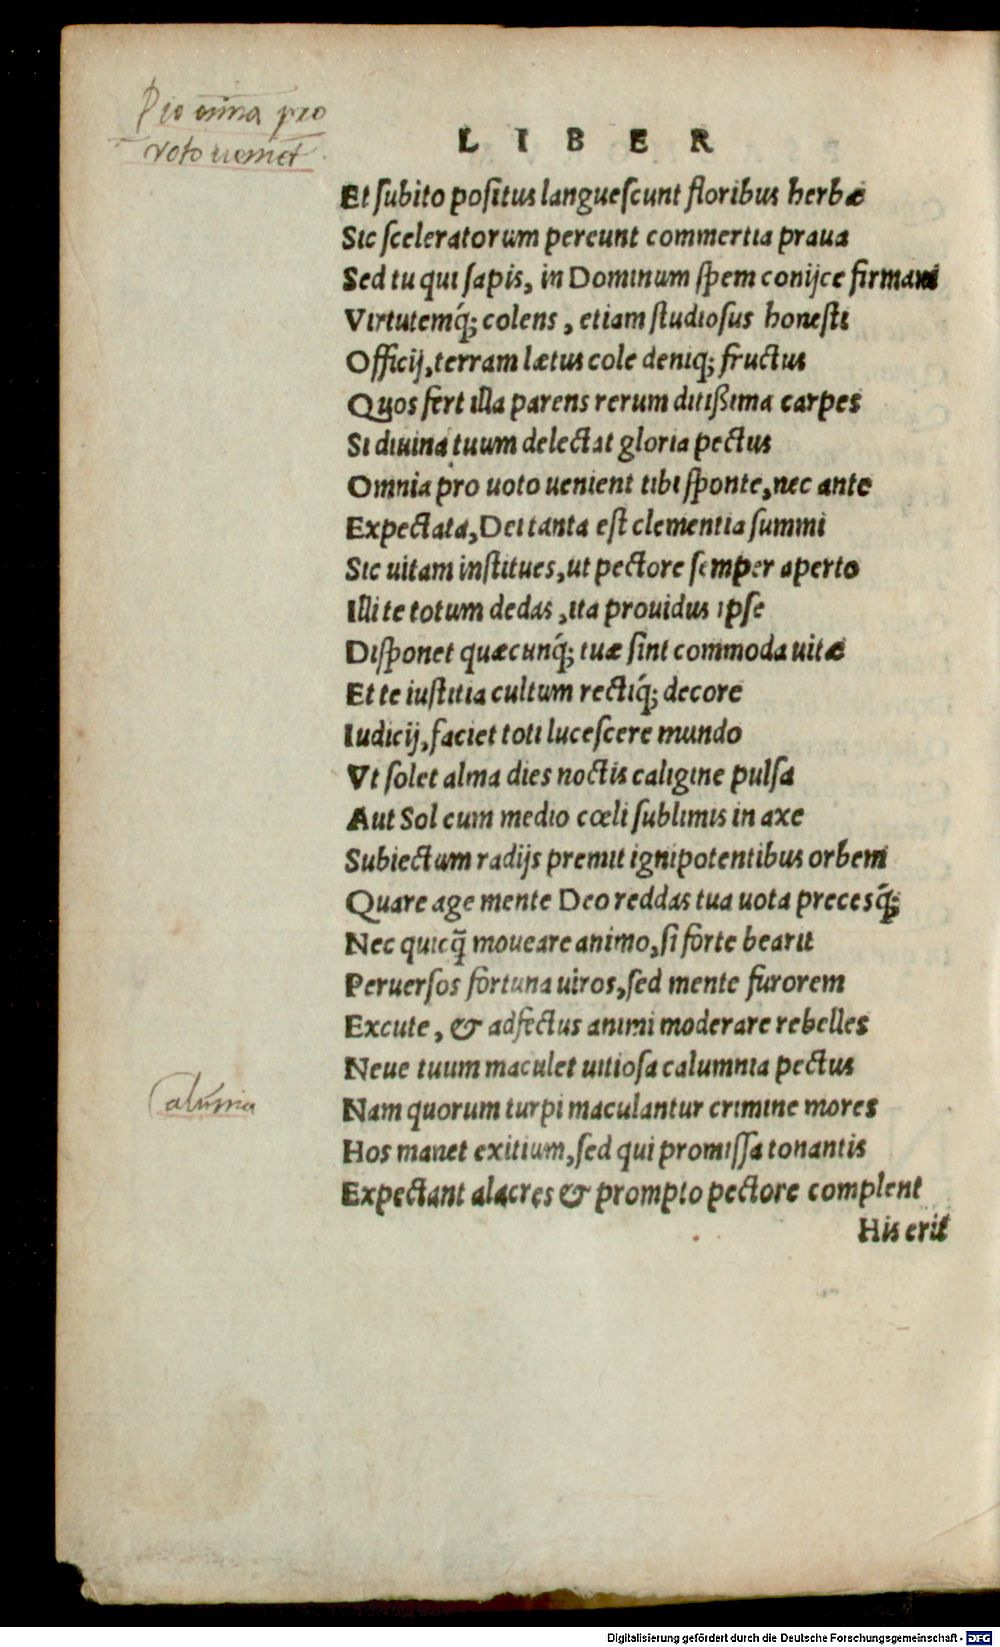 Pio om̄ia pro
voto veniēt
LIBER
Et subito positus languescunt floribus herbæ
Sic sceleratorum pereunt commertia praua
Sed tu qui sapis, in Dominum spem conijce firmam
Virtutemq́; colens, etiam studiosus honesti
Officij, terram lætus cole deniq; fructus
Quos fert illa parens rerum ditißima carpes
Si diuina tuum delectat gloria pectus
Omnia pro uoto uenient tibi sponte, nec ante
Expectata, Dei tanta est clementia summi
Sic uitam institues, ut pectore semper aperto
Illi te totum dedas, ita prouidus ipse
Disponet quæcunq́; tuæ sint commoda uitæ
Et te iustitia cultum rectiq́; decore
Iudicij, faciet toti lucescere mundo
Vt solet alma dies noctis caligine pulsa
Aut Sol cum medio cœli sublimis in axe
Subiectum radijs premit ignipotentibus orbem
Quare age mente Deo reddas tua uota precesq́;
Nec quicq̃ moueare animo, si forte bearit
Peruersos fortuna uiros, sed mente furorem
Excute, & adfectus animi moderare rebelles
Neue tuum maculet uitiosa calumnia pectus
Calūnia
Nam quorum turpi maculantur crimine mores
Hos manet exitium, sed qui promissa tonantis
Expectant alacres & prompto pectore complent
His erit
Digitalisierung gefördert durch die Deutsche Forschungsgemeinschaft - DFG